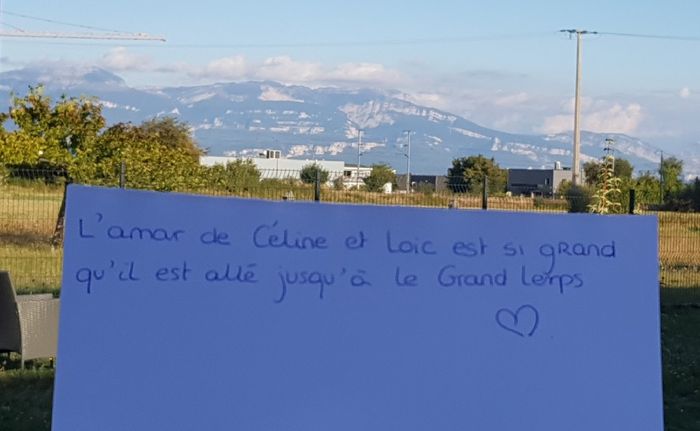 L'amar de Céline et Loic est si grand
qu'il est allé jusqu'à le Grand Lemps